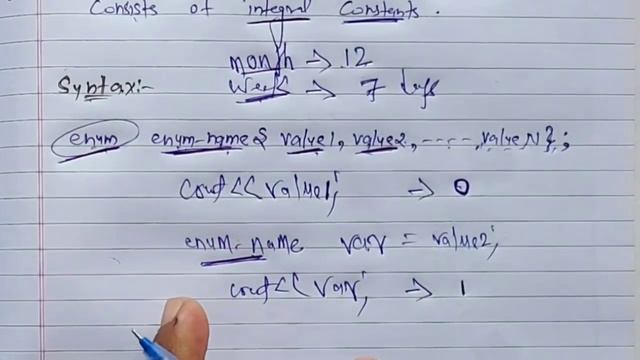 Consists of integral Constants.
month → 12
Syntax:- Week → 7 days
enum enum-name { value1, value2, -----, valueN};
cout<<value1; → 0
enum-name var = value2;
cout<<var; → 1